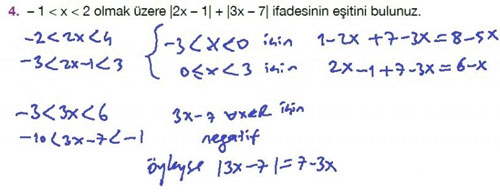 4. – 1 < x < 2 olmak üzere |2x – 1| + |3x – 7| ifadesinin eşitini bulunuz.
-2<2x<4
-3<2x-1<3
-3<x<0 için 1-2x+7-3x=8-5x
0≤x<3 için 2x-1+7-3x=6-x
-3<3x<6
-10<3x-7<-1
3x-7 ∀x∈R için
negatif
öyleyse |3x-7|=7-3x